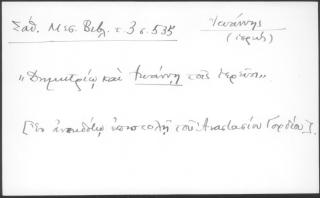 Σαθ. Μεσ. Βιβλ. τ. 3 σ. 535
Ἰωάννης
(ἱερεύς)
"Δημητρίῳ καὶ Ἰωάννῃ τοῖς ἱερεῦσι"
[Ἐν ἀνεκδότῳ ἐπιστολῇ τοῦ Ἀναστασίου Γορδίου].